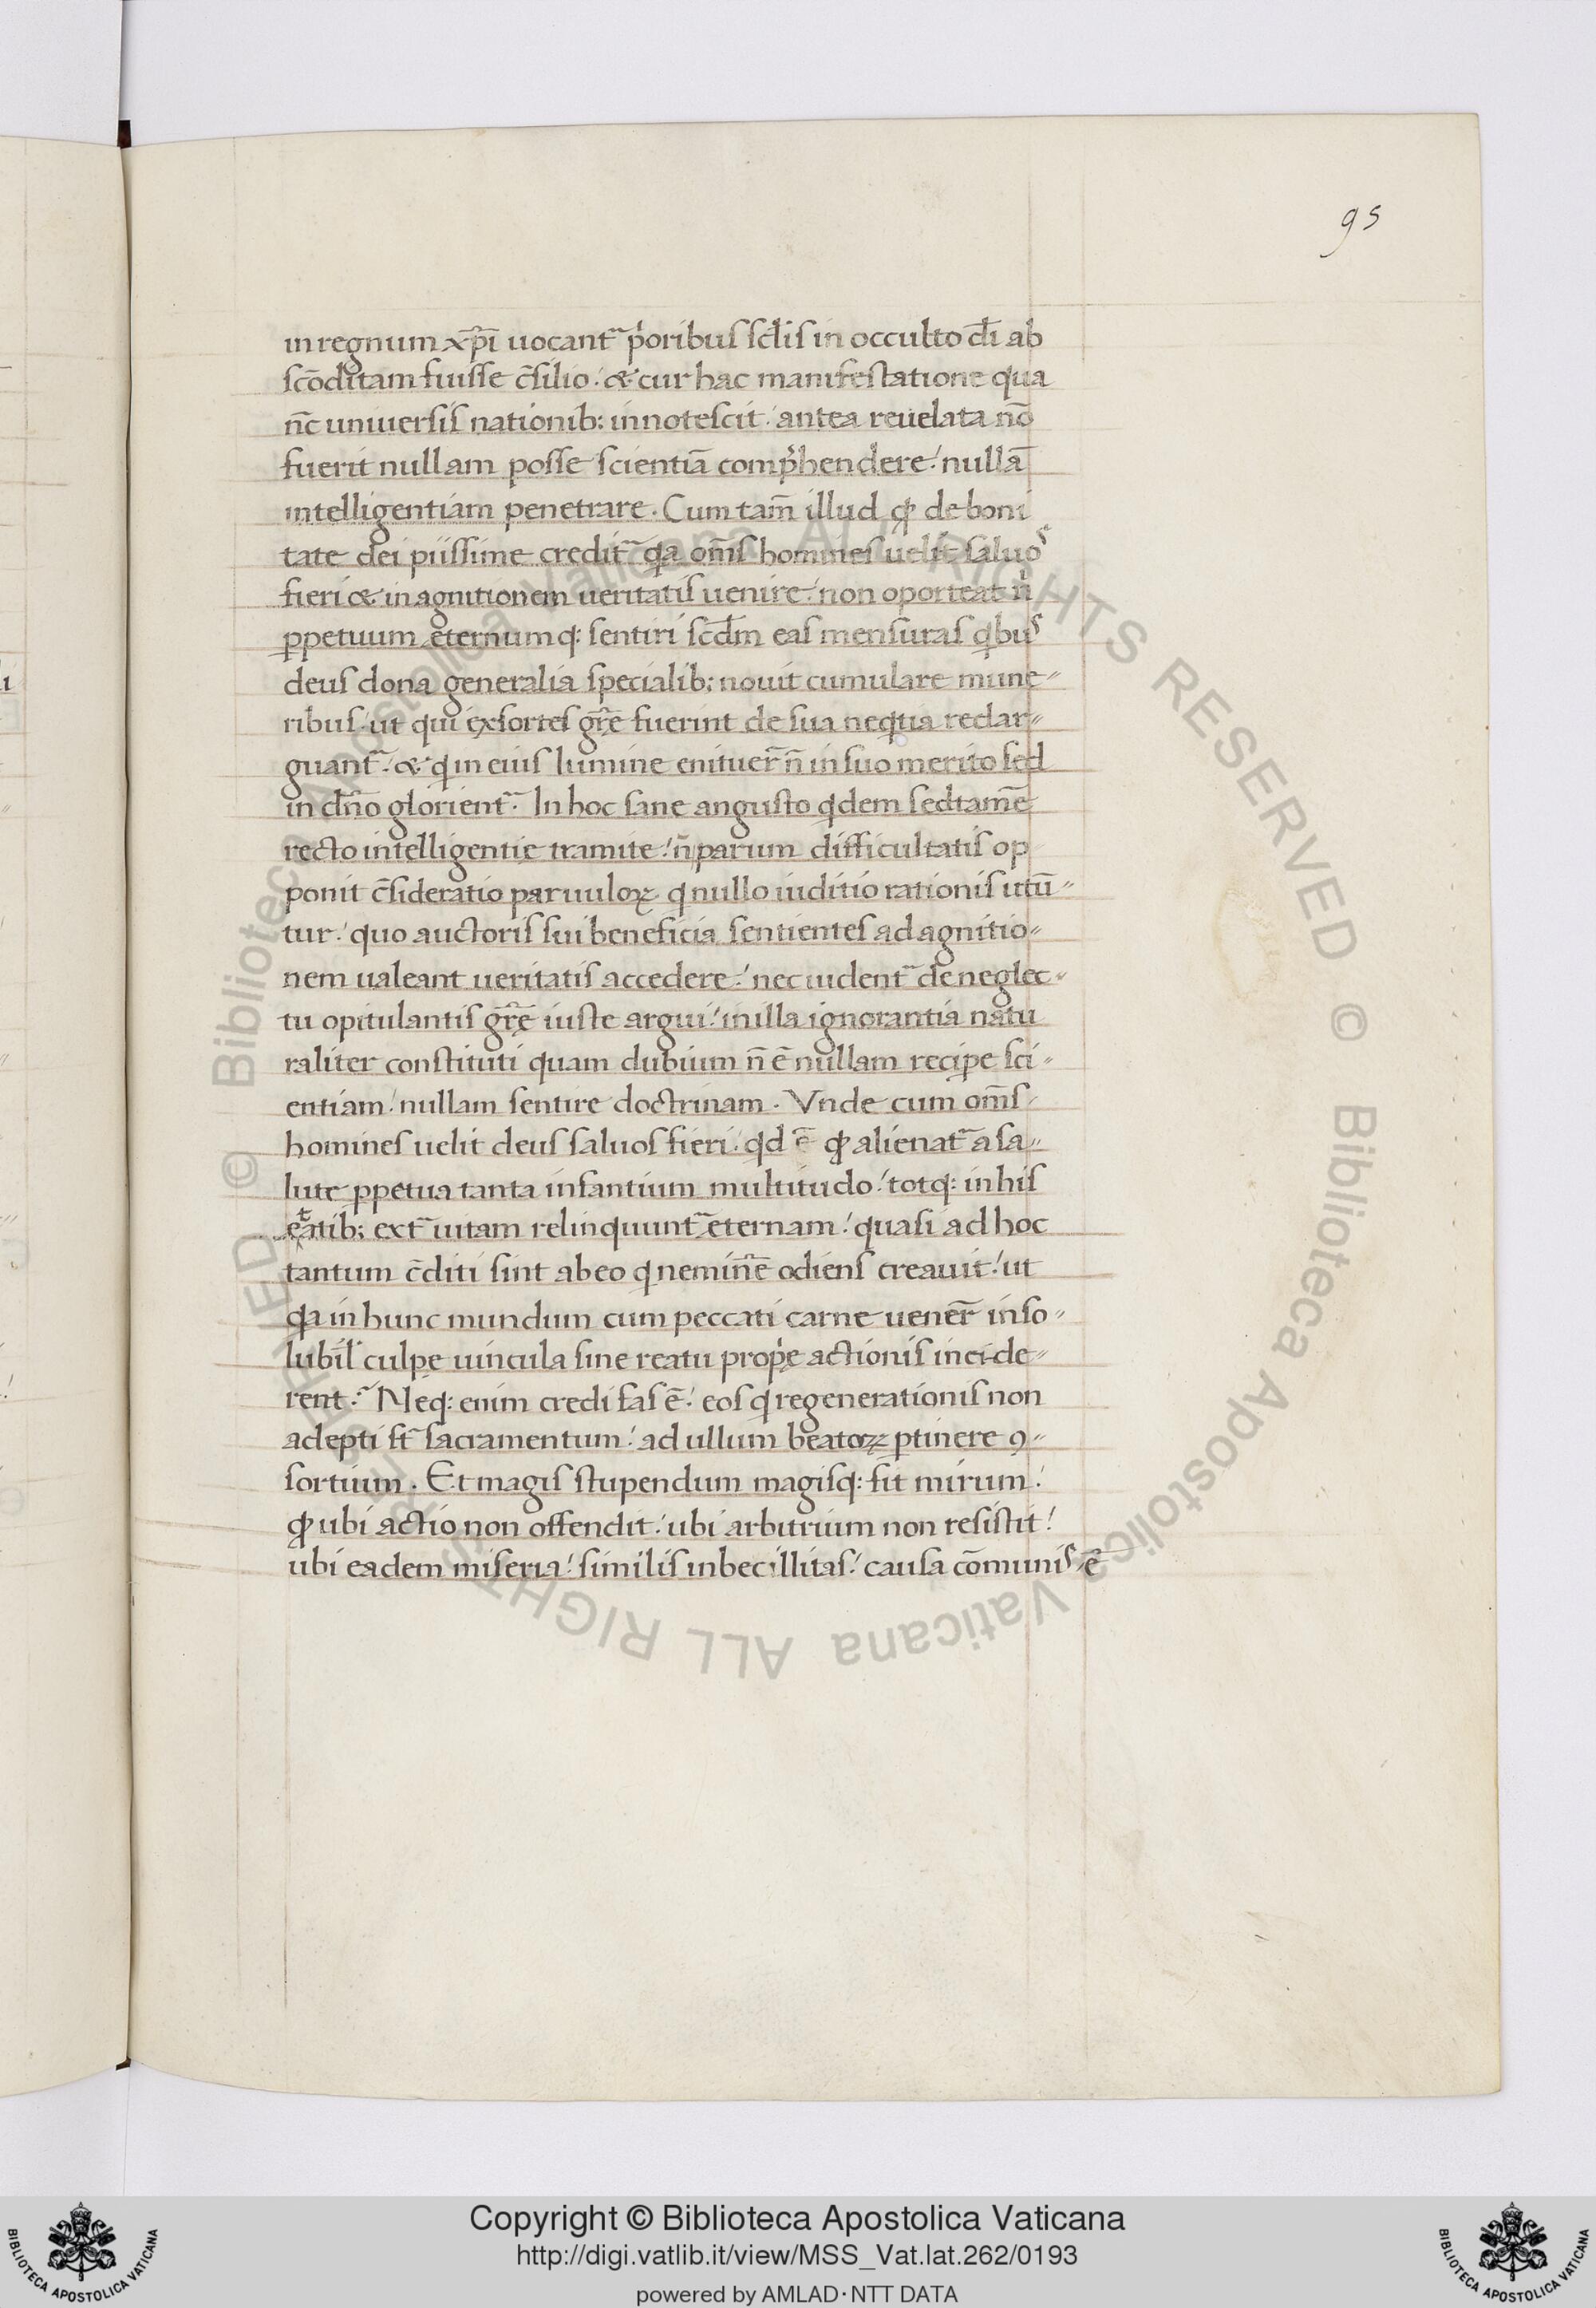 95
in regnum xp̄i uocant᷑ p̓oribus sc̄lis in occulto d̄i ab
scōditam fuisse c̄silio. & cur hac manifestatione qua
nc̄ uniuersis nationib: innotescit. antea reuelata nō
fuerit nullam posse scientiā comp̓hendere. nullā
intelligentiam penetrare. Cum tam̄ illud qđ de boni
tate dei piissime credit᷑ qa om̄s homines uelit saluos
fieri & in agnitionem ueritatis uenire. non oporteat n̓
ꝑpetuum ęternumq: sentiri scd̄m eas mensuras qbus
deus dona generalia specialib; nouit cumulare mune-
ribus. ut qui exsortes gr̄ę fuerint de sua neqtia redar-
guant᷑. & q in eius lumine enituer̄ n̄ in suo merito sed
in dn̄o glorient᷑. In hoc sane angusto qdem sed tam̄
recto intelligentię tramite. n̄ parum difficultatis op
ponit c̄sideratio paruuloꝝ q nullo iuditio rationis utū-
tur. quo auctoris sui beneficia sentientes ad agnitio-
nem ualeant ueritatis accedere. nec uident᷑ de neglec-
tu opitulantis gr̄ę iuste argui. in illa ignorantia natu
raliter constituti quam dubium n̄ ē nullam reciꝑe sci-
entiam. nullam sentire doctrinam. Vnde cum om̄s
homines uelit deus saluos fieri. qd ē qđ alienat᷑ a sa-
lute ꝑpetua tanta infantium multitudo. totq: in his
ętatib; ext᷑ uitam relinquunt᷑ ęternam. quasi ad hoc
tantum c̄diti sint ab eo q neminē odiens creauit. ut
qa in hunc mundum cum peccati carne uener̄ inso-
lubil̓ culpę uincula sine reatu prop̓ę actionis incide-
rent. Neq: enim credi fas ē. eos q regenerationis non
adepti st̄ sacramentum. ad ullum beatoꝝ ꝑtinere ꝯ-
sortium. Et magis stupendum magisq: fit mirum.
qđ ubi actio non offendit. ubi arbitrium non resistit.
ubi eadem miseria. similis inbecillitas. causa cōmunis ē
© Biblioteca Apostolica Vaticana ALL RIGHTS RESERVED © Biblioteca Apostolica Vaticana ALL RIGHTS RESERVED
Copyright © Biblioteca Apostolica Vaticana
http://digi.vatlib.it/view/MSS_Vat.lat.262/0193
powered by AMLAD·NTT DATA
BIBLIOTECA APOSTOLICA VATICANA
BIBLIOTECA APOSTOLICA VATICANA